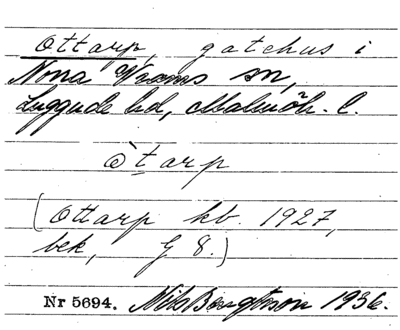 Ottarp, gatehus i
Norra Vrams sn,
Luggude hd, Malmöh. l.
òt̲arp
(Ottarp kb. 1927,
bek, G 8.)
Nr 5694. Nils Bengtsson 1936.